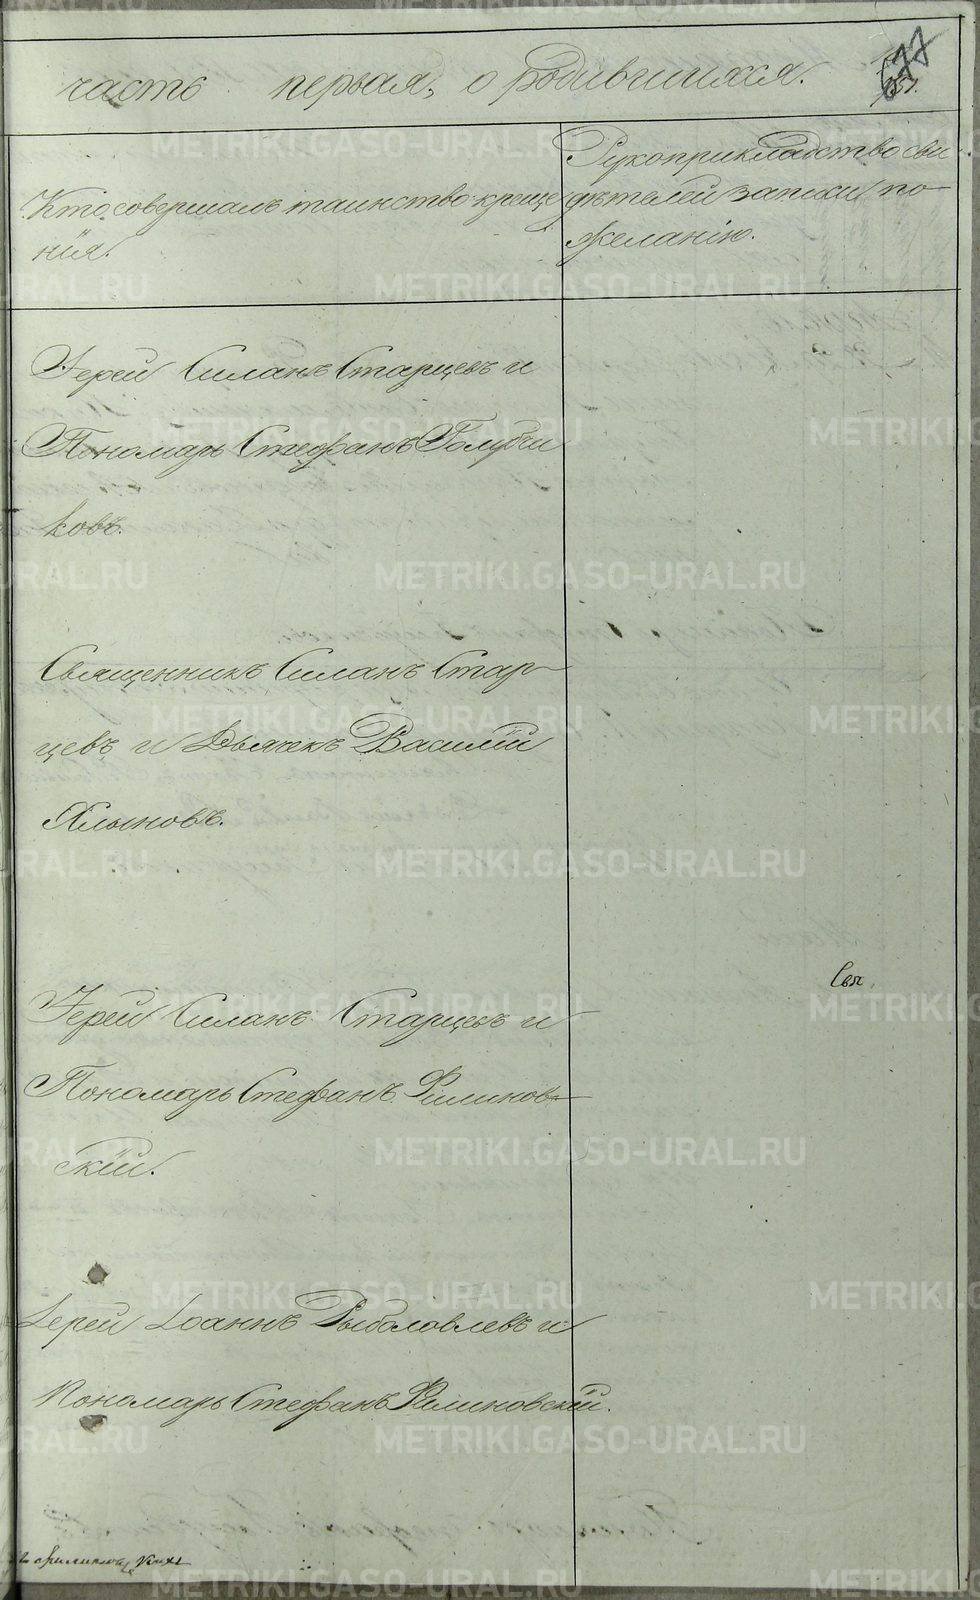 часть первая, о родившихся.
77
Кто совершалъ таинство креще
нія.
Рукоприкладство сви
дѣтелей записи по
желанію.
Іерей Силанъ Старцевъ и
Пономарь Стефанъ Голубчи
ковъ.
Священникъ Силанъ Стар
цевъ и Дьячекъ Василій
Хлыновъ.
Свя
Іерей Силанъ Старцевъ и
Пономарь Стефанъ Филинов
скій.
Іерей Іоаннъ Рыболовлевъ и
Пономарь Стефанъ Филиновскій.
METRIKI.GASO-URAL.RU